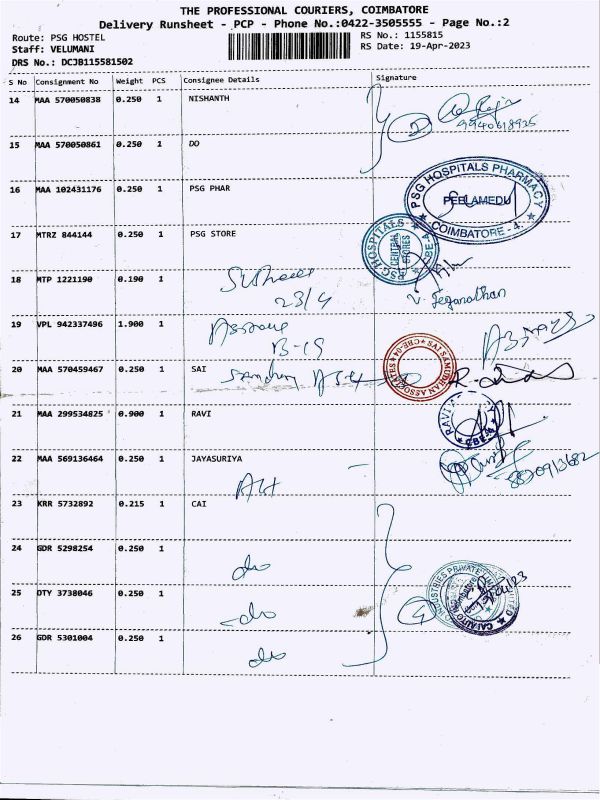 THE PROFESSIONAL COURIERS, COIMBATORE
Delivery Runsheet - PCP - Phone No.:0422-3505555 - Page No.:2
Route: PSG HOSTEL
RS No.: 1155815
Staff: VELUMANI
RS Date: 19-Apr-2023
DRS No.: DCJB115581502
S No Consignment No Weight PCS Consignee Details Signature
14 MAA 570050838 0.250 1 NISHANTH
9940618925
15 MAA 570050861 0.250 1 DO
16 MAA 102431176 0.250 1 PSG PHAR
PSG HOSPITALS PHARMACY
PEELAMEDU
COIMBATORE - 4.
17 MTRZ 844144 0.250 1 PSG STORE
PSG HOSPITALS
CENTRAL STORES
18 MTP 1221190 0.190 1
23/4
V. Jeganathan
19 VPL 942337496 1.900 1
B-19
20 MAA 570459467 0.250 1 SAI
SAI SAMUDRAA ASSOCIATES CBE-04
21 MAA 299534825 0.900 1 RAVI
RAVI
22 MAA 569136464 0.250 1 JAYASURIYA
23 KRR 5732892 0.215 1 CAI
24 GDR 5298254 0.250 1
do
25 OTY 3738046 0.250 1
do
INDUSTRIES PRIVATE LIMITED
26 GDR 5301004 0.250 1
do